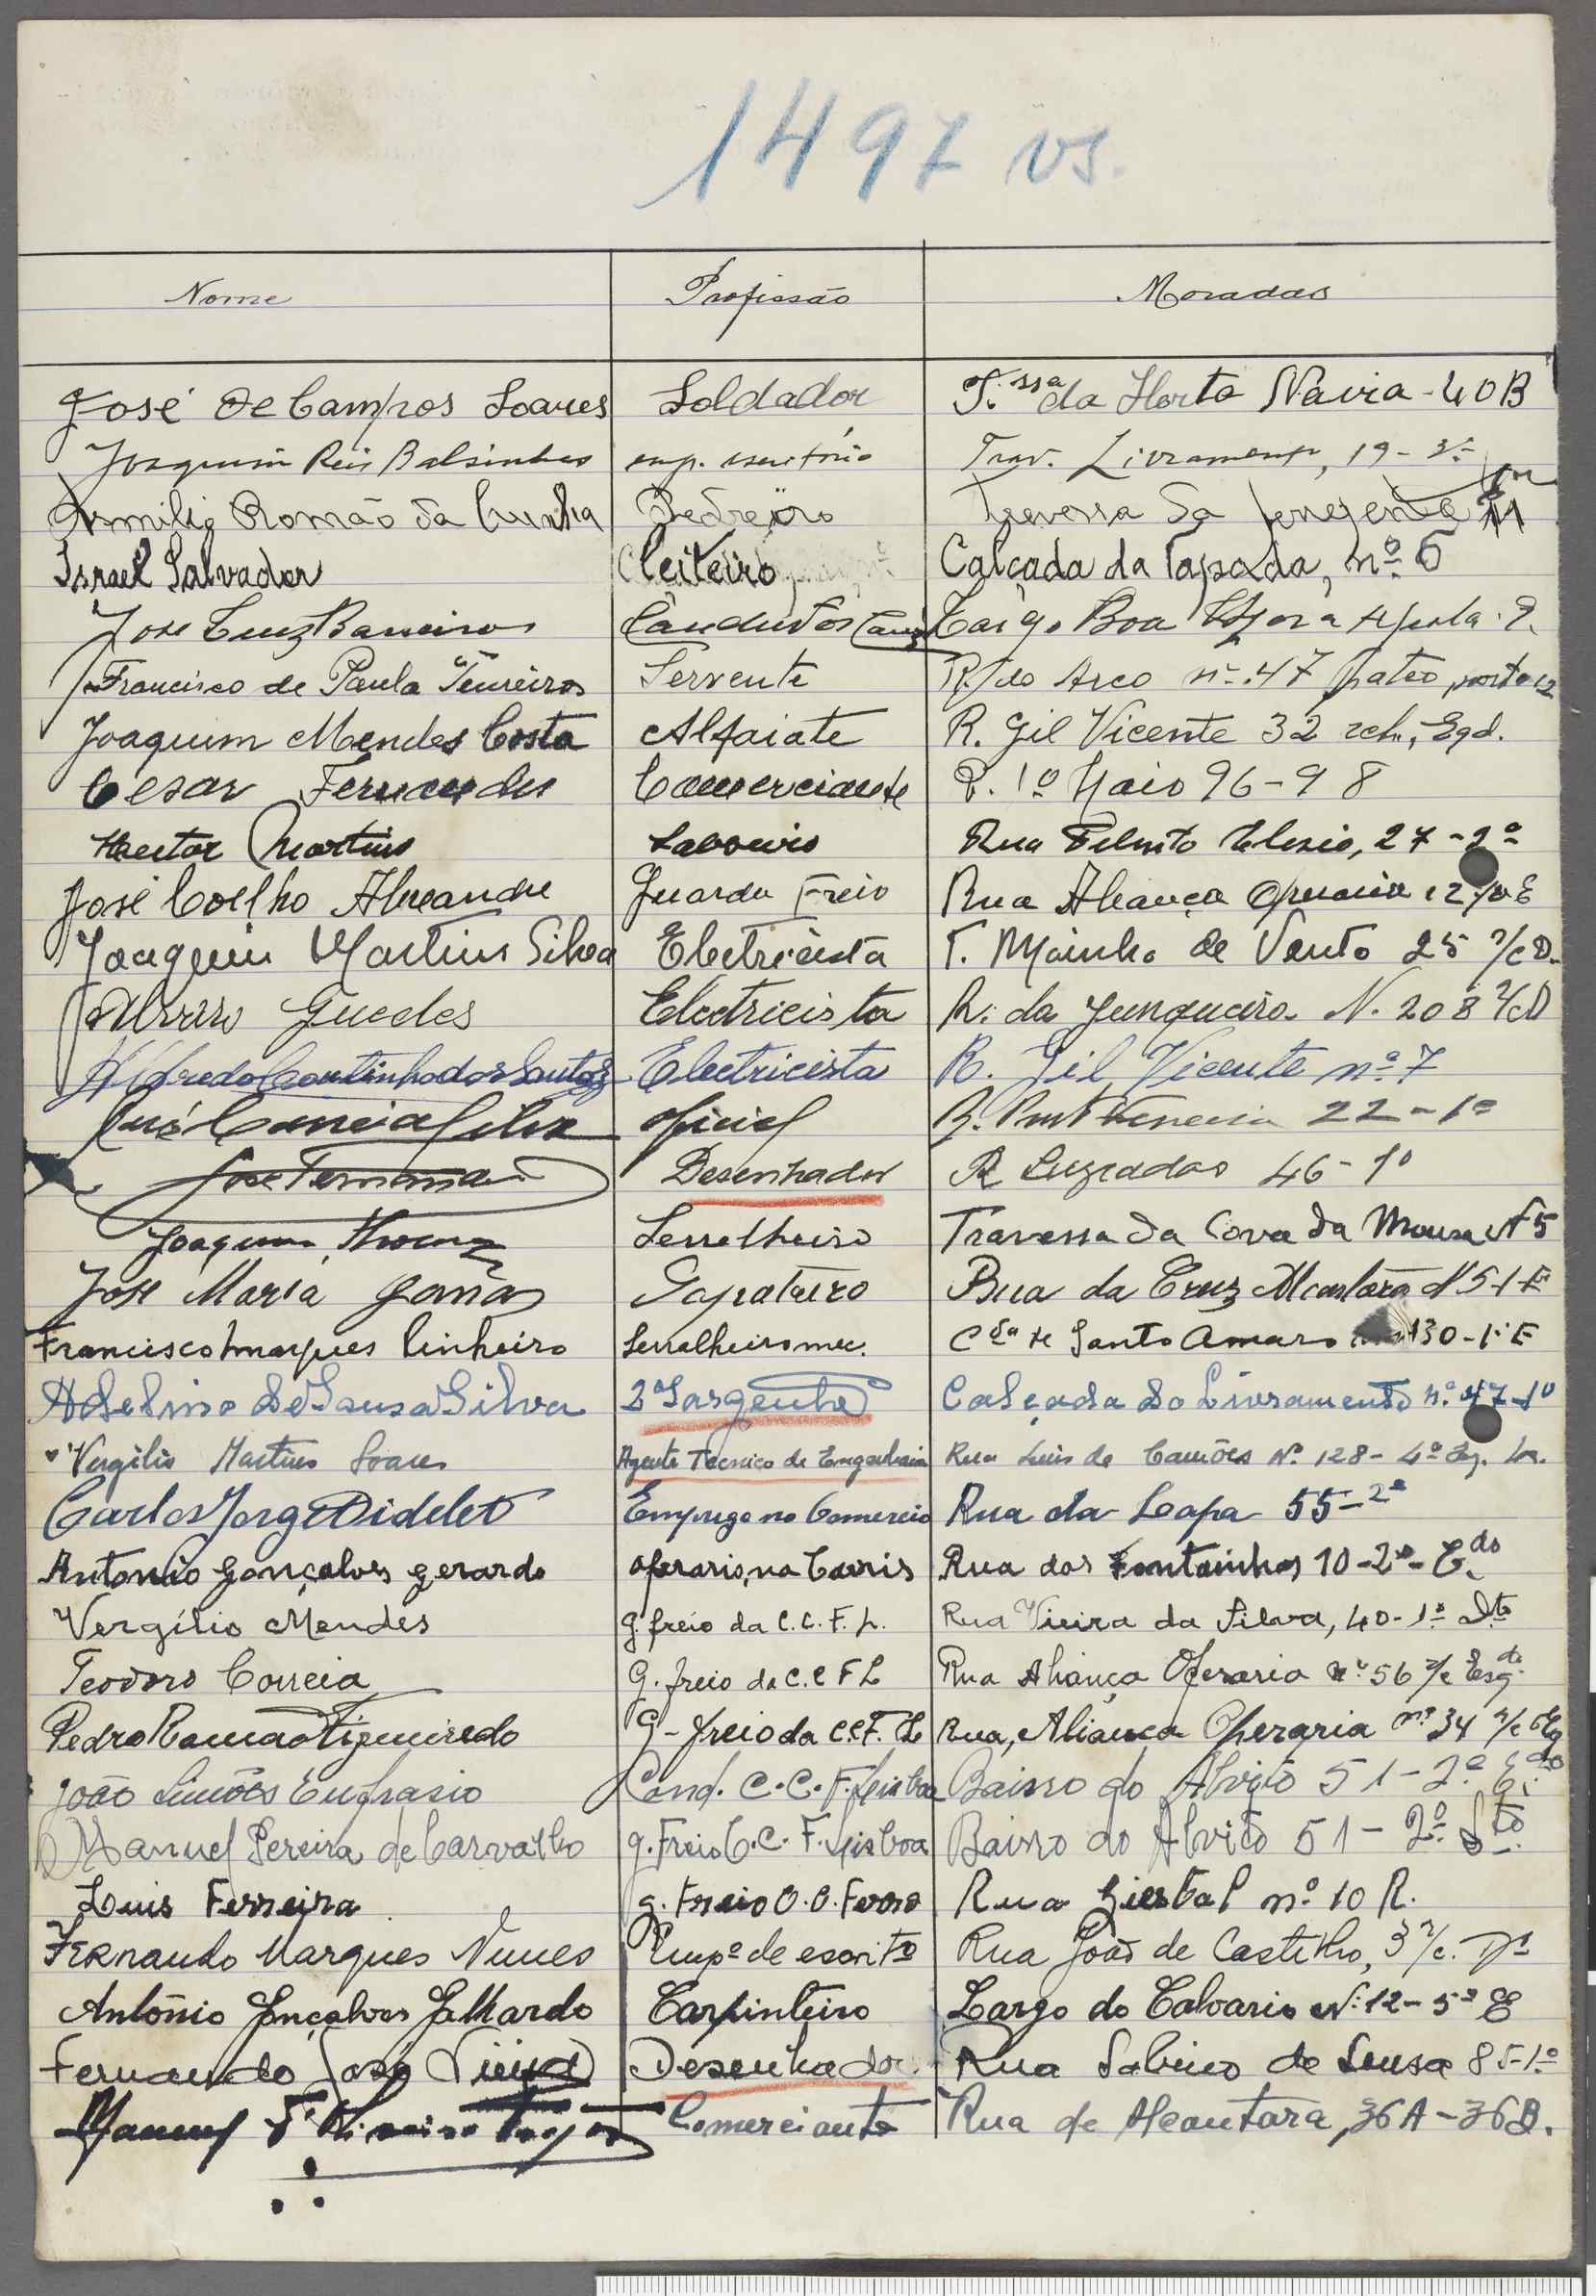 1497 vs.
Nome Profissão Moradas
José de Campos Soares Soldador T.ssa da Horta Navia - 40B
Joaquim Reis Balsinhas emp. escritório Trav. Livramento, 19-3º
Romão da Cunha Pedreiro Travessa da
Israel Salvador Leiteiro Calçada da Tapada, nº 5
José Luz Barreiros Condutor Largo Boa Hora
Francisco de Paula Servente R. do Arco nº 47 pateo, porta 12
Joaquim Mendes Costa Alfaiate R. Gil Vicente 32 rch, Eqd.
Cesar Fernandes Comerciante R. 1º Maio 96-98
Martins Rua Filinto Elesio, 27-2º
José Coelho Alexandre Guarda Freio Rua Aliança Operaria 12 E
Joaquim Martins Silva Electricista T. Moinho de Vento 25 r/c D.
Alvaro Guedes Electricista R. da Junqueira N. 208 r/c D
Alfredo Coutinho dos Santos Electricista R. Gil Vicente nº 7
José Correia Silva Oficial R. 22-1º
José Desenhador R Luziadas 46-1º
Joaquim Serralheiro Travessa da Cova da Moura Nº 5
José Maria Sapateiro Rua da Cruz Alcantara Nº 5-1-E
Francisco Marques Pinheiro Serralheiro mec. Cçda de Santo Amaro 130-1º E
Adelino de Sousa Silva 2º Sargento Calçada do Livramento nº 47-1º
Vergilio Martins Soares Agente Tecnico de Engenharia Rua Luis de Camões Nº 128-4º
Carlos Jorge Didelet Emprego no Comercio Rua da Lapa 55-2º
Antonio Gonçalves gerardo operario, na Carris Rua das Fontainhas 10-2º-E.do
Vergílio Mendes g. freio da C.C.F.L. Rua Vieira da Silva, 40-1º Dto
Teodoro Correia G. freio da C.C F L Rua Aliança Operaria nº 56 r/c Esq.
Pedro Ramao Figueiredo G-freio da C.C.F.L Rua, Aliança Operaria nº 34 r/c Esq
João Simões Eufrasio Cond. C.C.F. Lisboa Bairro do Alvito 51-2º E.do
Manuel Pereira de Carvalho g. Freio C.C.F. Lisboa Bairro do Alvito 51-2º Dto
Luis Ferreira g. Freio C.C. Ferro Rua Giestal nº 10 R.
Fernando Marques Nunes Empº de escritº Rua João de Castilho, 3 r/c. Dº
António Gonçalves Galhardo Carpinteiro Largo do Calvario Nº 12-5º E
Fernando José Vieira Desenhador Rua Sabino de Sousa 85-1º
Manuel Comerciante Rua de Alcantara, 36A-36B.